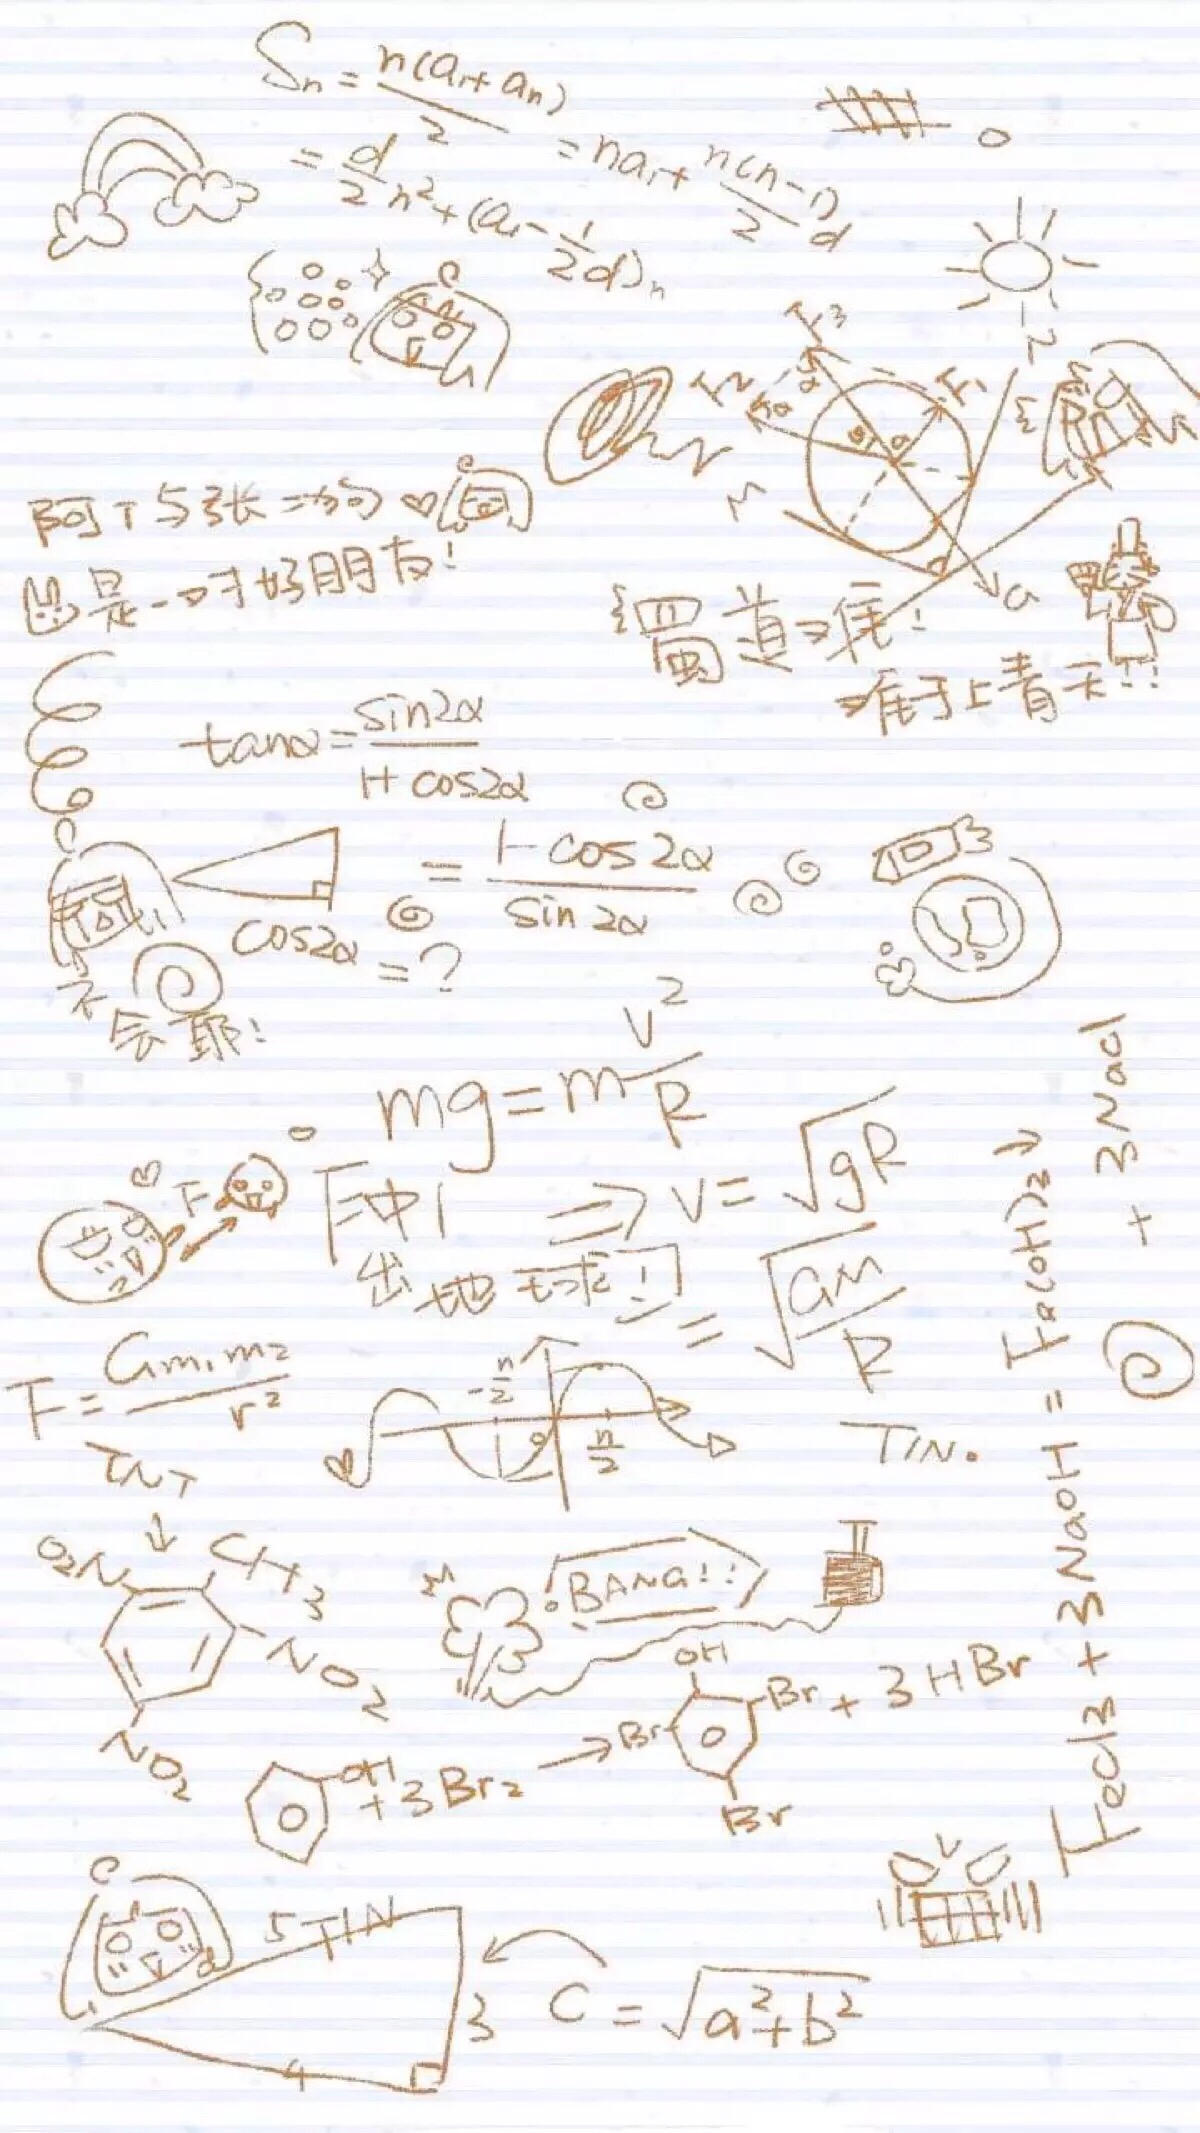 Sn = n(a₁+an)/2
= d/2 n² + (a₁ - 1/2 d)n
= na₁ + n(n-1)/2 d
F3
F2
F1
阿T与张二狗
是一对好朋友!
M
G
蜀道难!
难于上青天!!
tanα = sin2α / 1+cos2α
= 1-cos2α / sin2α
cos2α = ?
不会耶!
mg = m v²/R
F
F冲出地球!
⇒ v = √gR
= √GM/R
F = Gm₁m₂/r²
-π/2
0
π/2
TIN.
TNT
↓
O2N
CH3
NO2
NO2
BANG!!
OH
+ 3Br2
→
OH
Br
Br
Br
+ 3HBr
FeCl3 + 3NaOH = Fe(OH)2 → + 3NaCl
5
TIN
3
4
C = √a²+b²